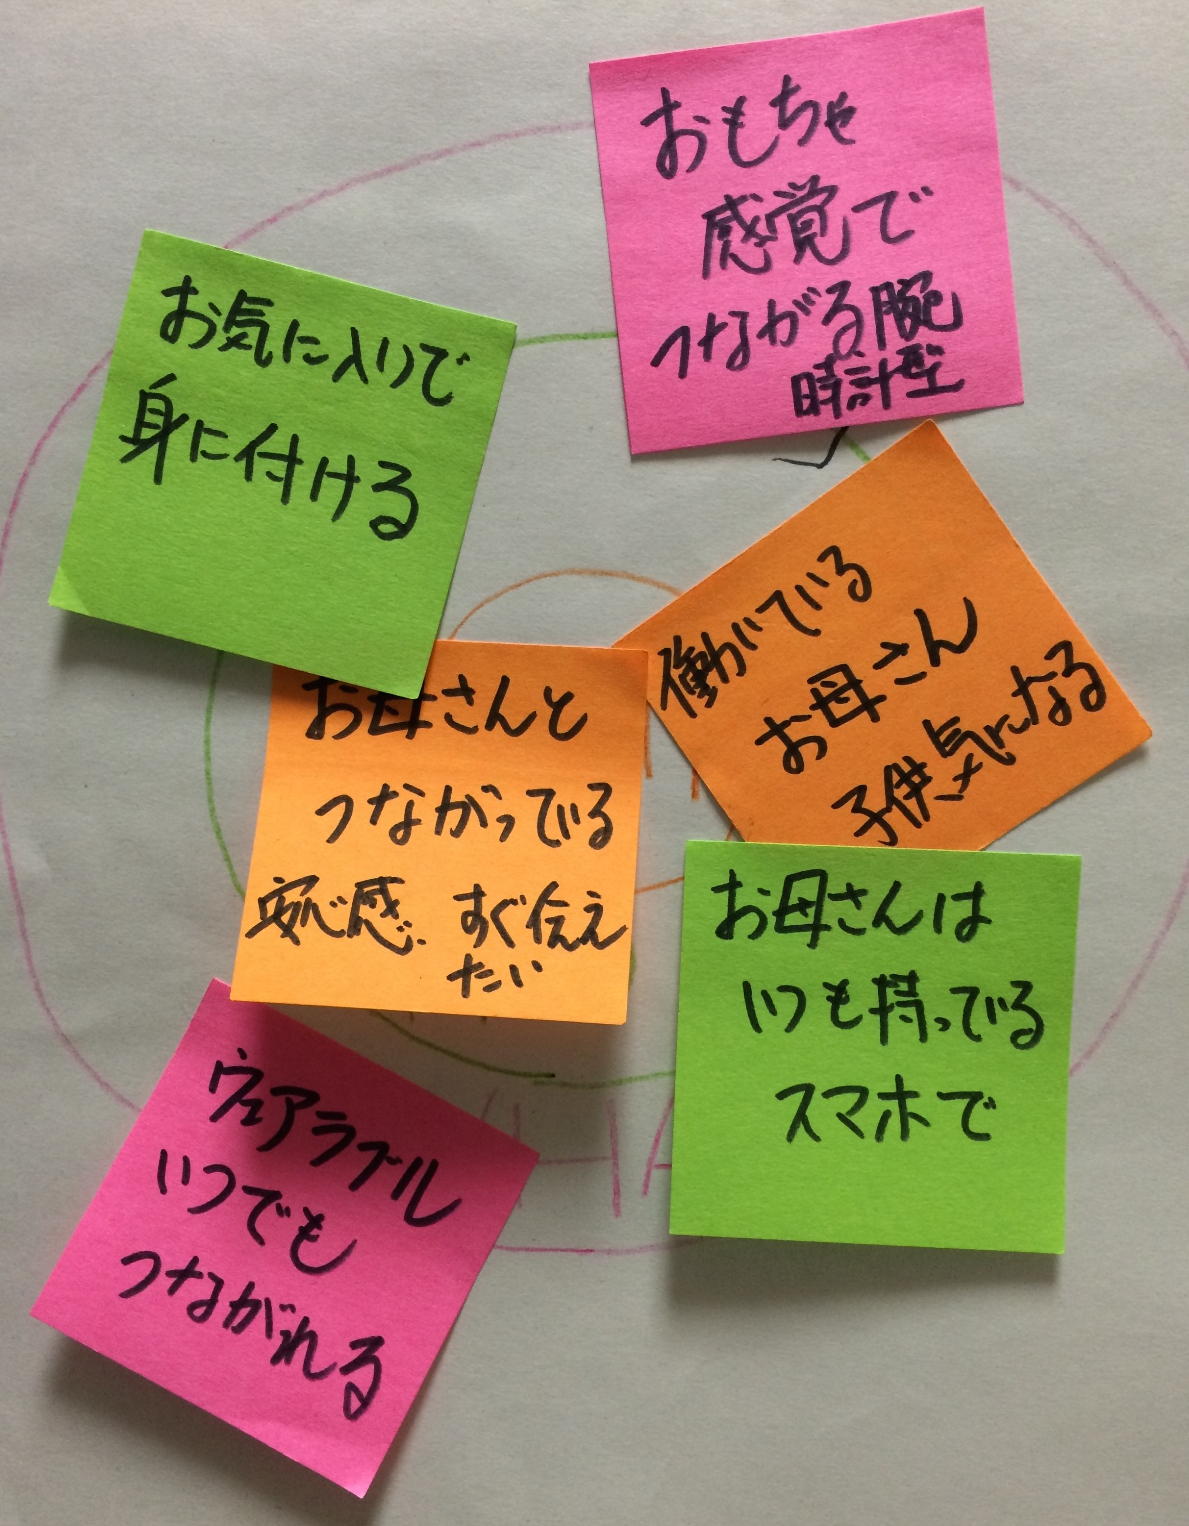 おもちゃ
感覚で
つながる腕
時計型
お気に入りで
身に付ける
働いている
お母さん
子供気になる
お母さんと
つながっている
安心感、すぐ伝え
たい
お母さんは
いつも持っている
スマホで
ウェアラブル
いつでも
つながれる